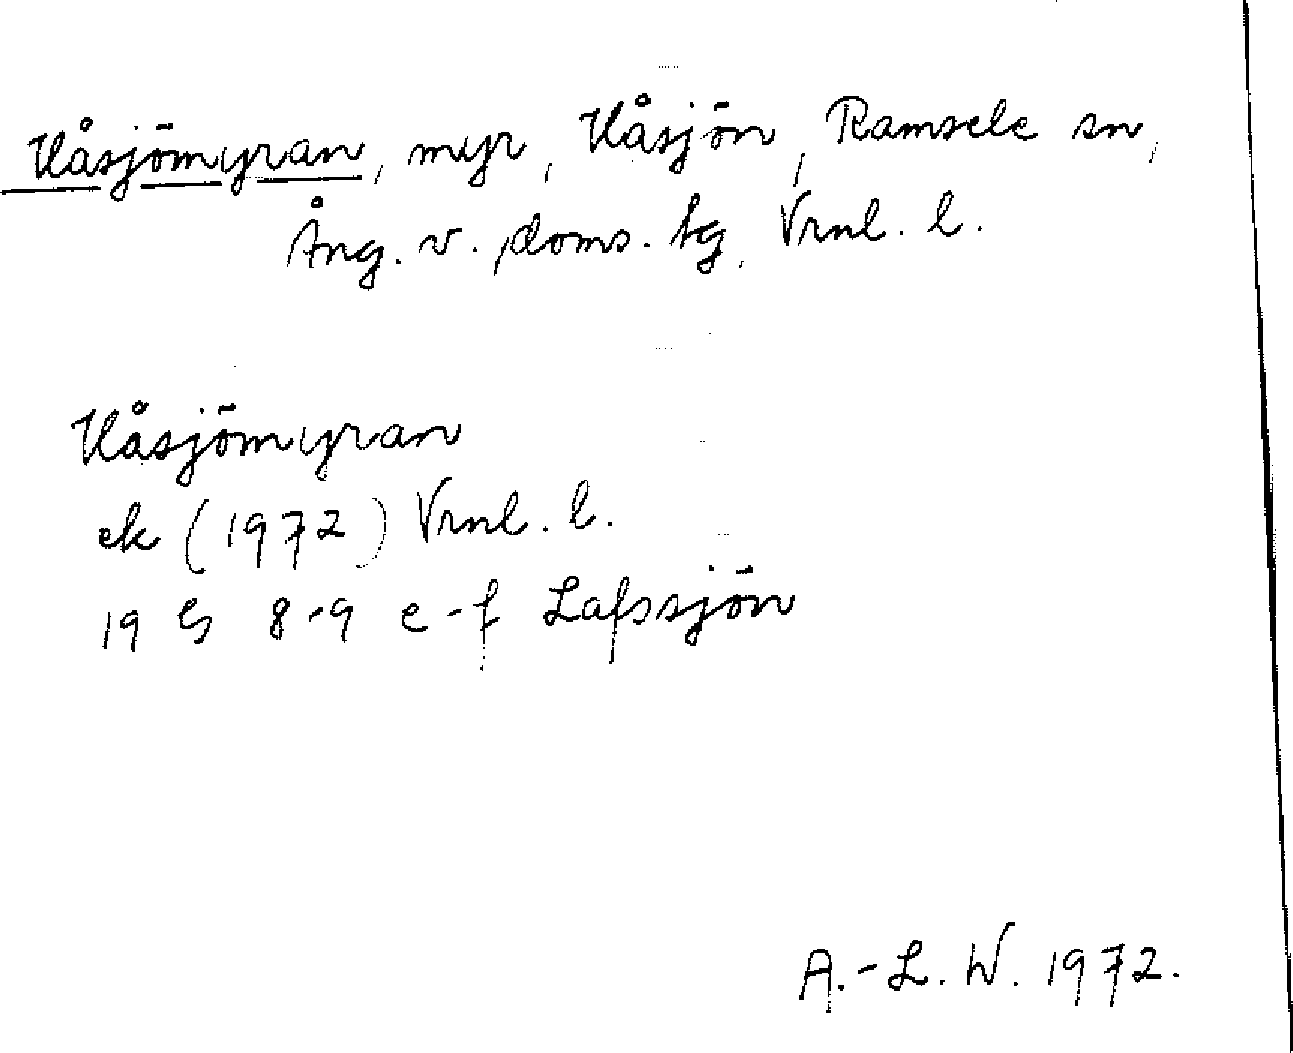 Våsjömyran, myr, Våsjön, Ramsele sn,
Ång. v. doms. tg, Vrnl. l.
Våsjömyran
ek (1972) Vrnl. l.
19 G 8-9 e-f Lafssjön
A.-L. W. 1972.